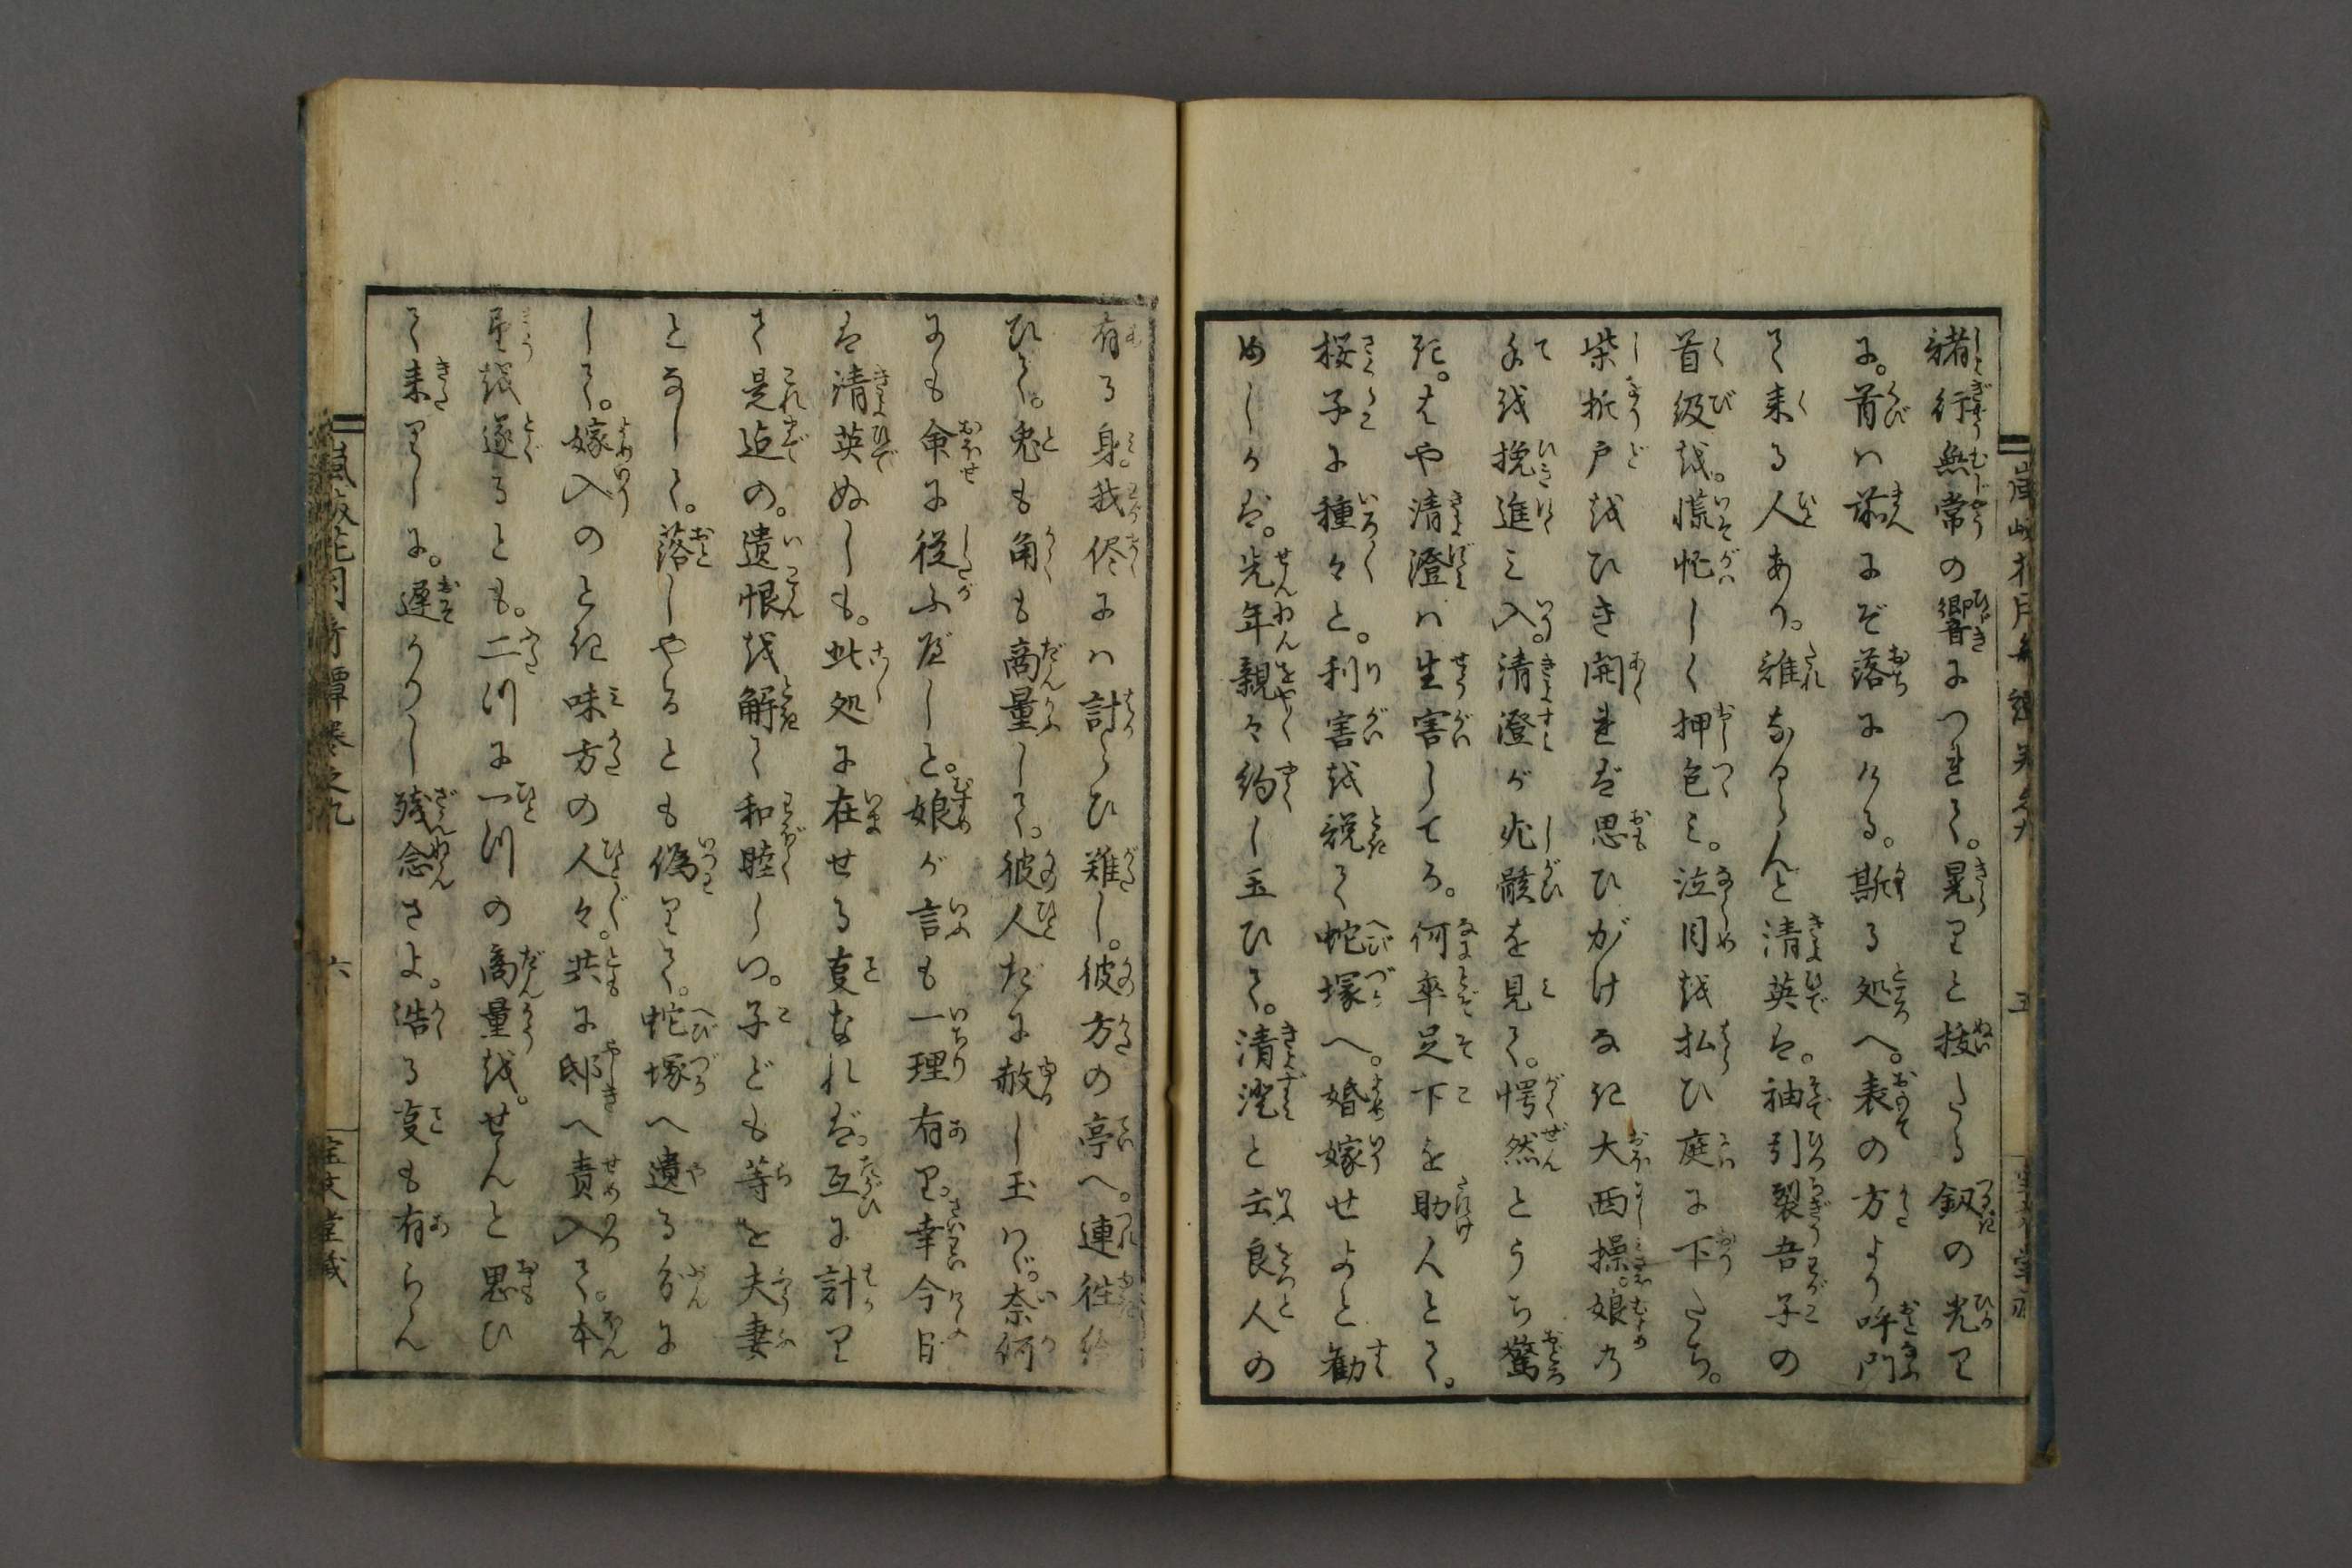 諸行無常の響につれて。晃りと抜たる釼の光り
に。首は前にぞ落にける。斯る処へ。表の方より呼門
て来る人あり。誰ならんと清英は。袖引裂吾子の
首級を。慌忙しく押包み。泣目を払ひ庭に下たち。
柴折戸をひき開れば思ひがけなき大西操。娘の
手を挽進み入。清澄が死骸を見て。愕然とうち驚
き。はや清澄は生害してる。何卒足下を助んとて。
桜子に種々と。利害を説て蛇塚へ。婚嫁せよと勧
めしかば。先年親々約し玉ひて。清澄と云良人の
有る身。我侭には計らひ難し。彼方の亭へ。連往給
ひて。兎も角も商量して。彼人だに赦し玉はゞ。奈何
にも命に従ふべしと。娘が言も一理有り。幸今日
は清英ぬしも。此処に在せる事なれば。互に計り
て是迠の。遺恨を解て和睦しつ。子ども等を夫妻
となして。落しやるとも偽りて。蛇塚へ遺る分に
して。嫁入のとき味方の人々。共に邸へ責入て。本
望を遂るとも。二つに一つの商量を。せんと思ひ
て来りしに。遅かりし残念さよ。浩る事も有らん
巻之九
六